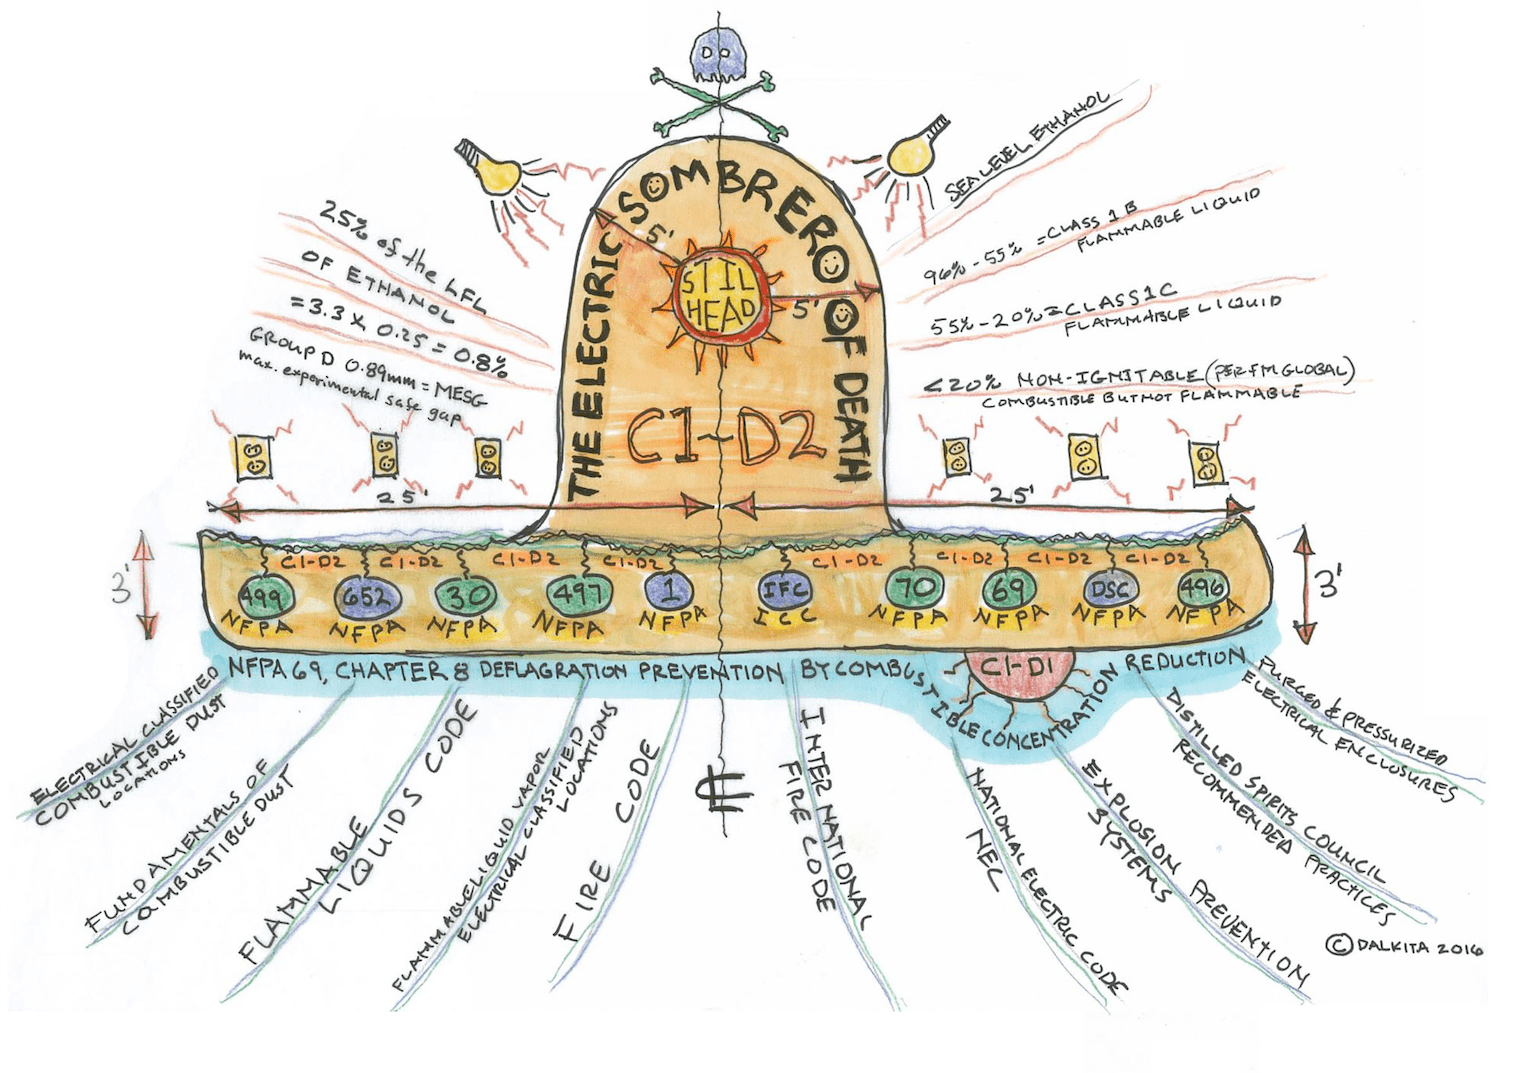 THE ELECTRIC SOMBRERO OF DEATH
5'
STIL
HEAD
5'
C1-D2
25% of the LFL
OF ETHANOL
= 3.3 x 0.25 = 0.8%
GROUP D 0.89mm = MESG
max. experimental safe gap
SEA LEVEL ETHANOL
96% - 55% = CLASS 1B
FLAMMABLE LIQUID
55% - 20% = CLASS 1C
FLAMMABLE LIQUID
<20% NON-IGNITABLE (PER FM GLOBAL)
COMBUSTIBLE BUT NOT FLAMMABLE
25'
25'
3'
3'
C1-D2 C1-D2 C1-D2 C1-D2 C1-D2 C1-D2 C1-D2 C1-D2
499
NFPA
652
NFPA
30
NFPA
497
NFPA
1
NFPA
IFC
ICC
70
NFPA
69
NFPA
DSC
NFPA
496
NFPA
C1-D1
NFPA 69, CHAPTER 8 DEFLAGRATION PREVENTION BY COMBUSTIBLE CONCENTRATION REDUCTION
ELECTRICAL CLASSIFIED
COMBUSTIBLE DUST
LOCATIONS
FUNDAMENTALS OF
COMBUSTIBLE DUST
FLAMMABLE
LIQUIDS CODE
FLAMMABLE LIQUID VAPOR
ELECTRICAL CLASSIFIED
LOCATIONS
FIRE CODE
INTERNATIONAL
FIRE CODE
NATIONAL ELECTRIC CODE
NEC
EXPLOSION PREVENTION
SYSTEMS
DISTILLED SPIRITS COUNCIL
RECOMMENDED PRACTICES
PURGED & PRESSURIZED
ELECTRICAL ENCLOSURES
© DALKITA 2016